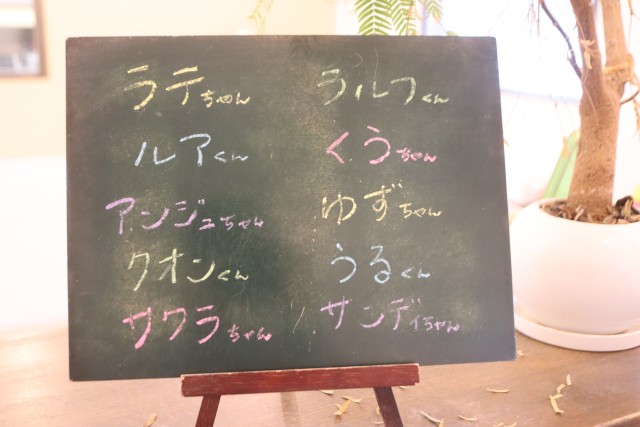 ラテちゃん
ルアくん
アンジュちゃん
クオンくん
サクラちゃん
ラルフくん
くうちゃん
ゆずちゃん
うるくん
サンディちゃん